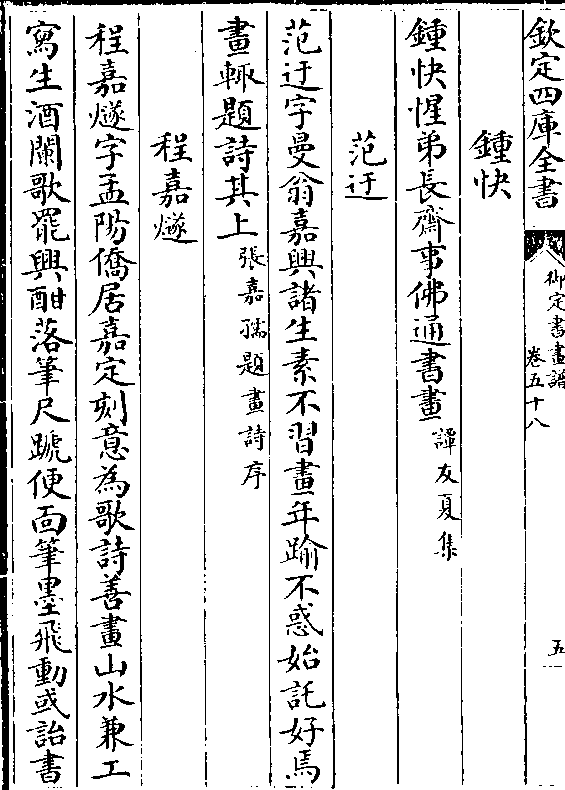 欽定四庫全書
御定書畫譜
卷五十八
五
鍾快
鍾快惺弟長齋事佛通書畫譚友夏集
范迂
范迂字曼翁嘉興諸生素不習畫年踰不惑始託好焉
畫輒題詩其上張嘉孺題畫詩序
程嘉燧
程嘉燧字孟陽僑居嘉定刻意為歌詩善畫山水兼工
寫生酒闌歌罷興酣落筆尺蹏便面筆墨飛動或詒書